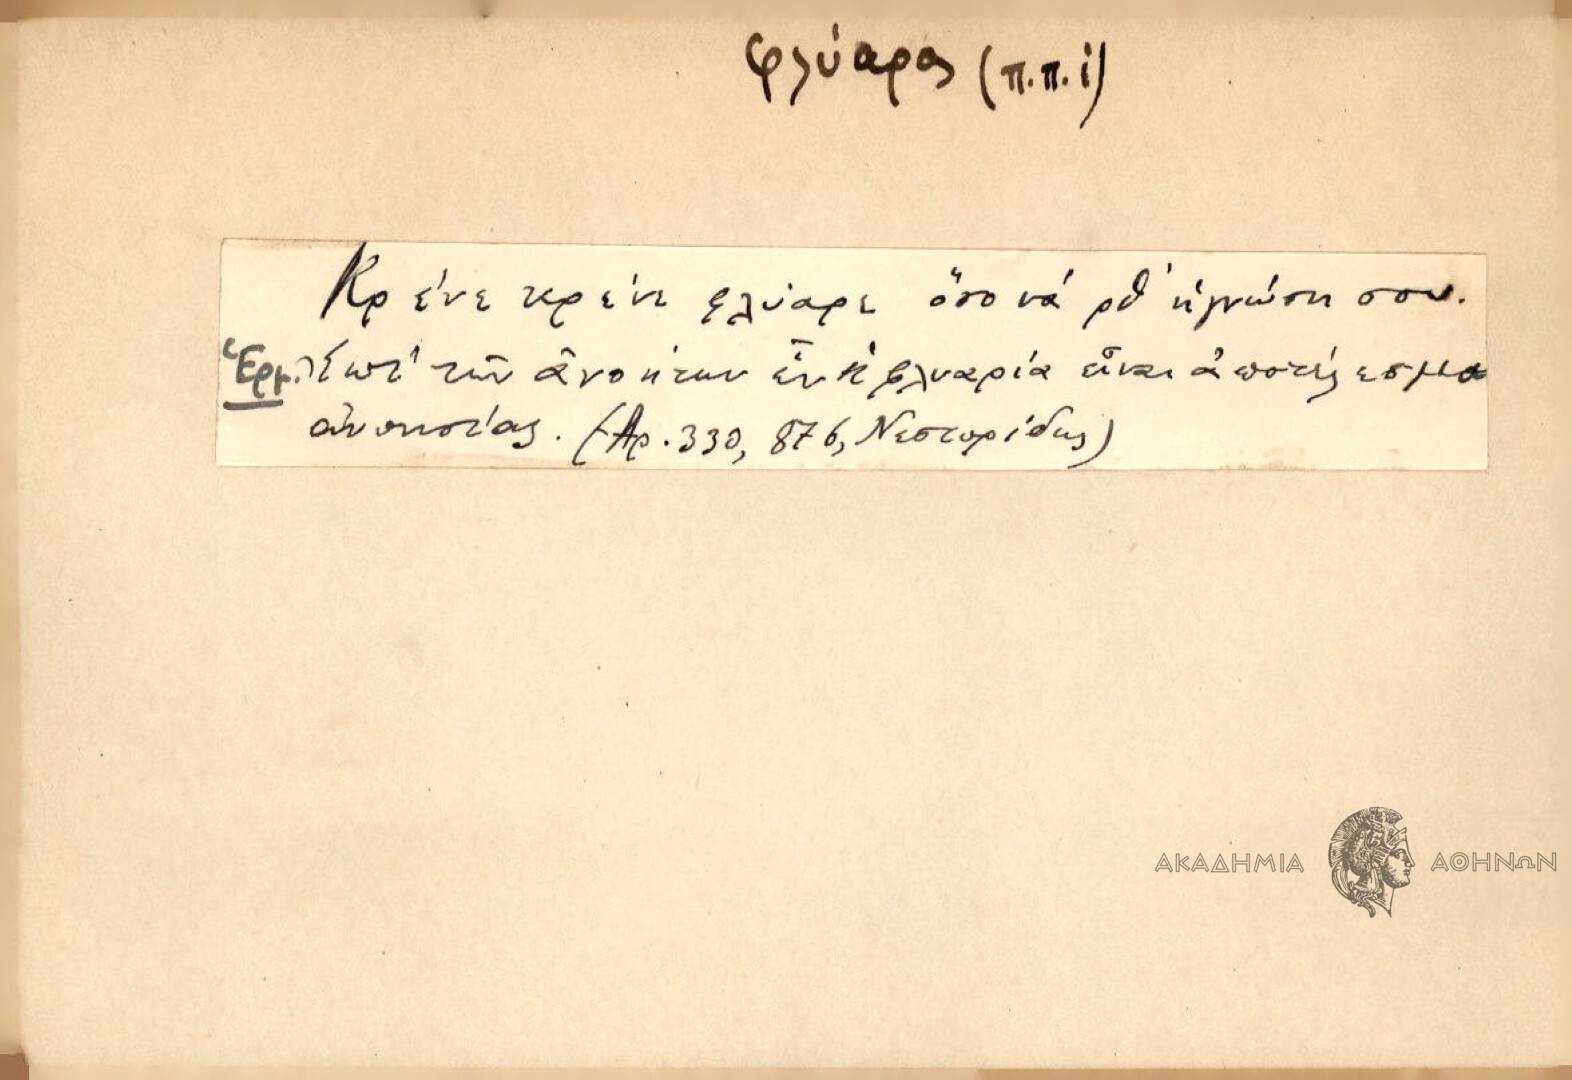 φλύαρος (π.π.ἰ)
Κρένε κρένε φλύαρε ὅσο νά ρθ' ἡ γνώση σου.
Ἑρμ. Ἐπί τῶν ἀνοήτων ὧν ἡ φλυαρία εἶναι ἀποτέλεσμα
ἀνοησίας. (Ἀρ. 330, 876, Νεστορίδης)
ΑΚΑΔΗΜΙΑ ΑΘΗΝΩΝ